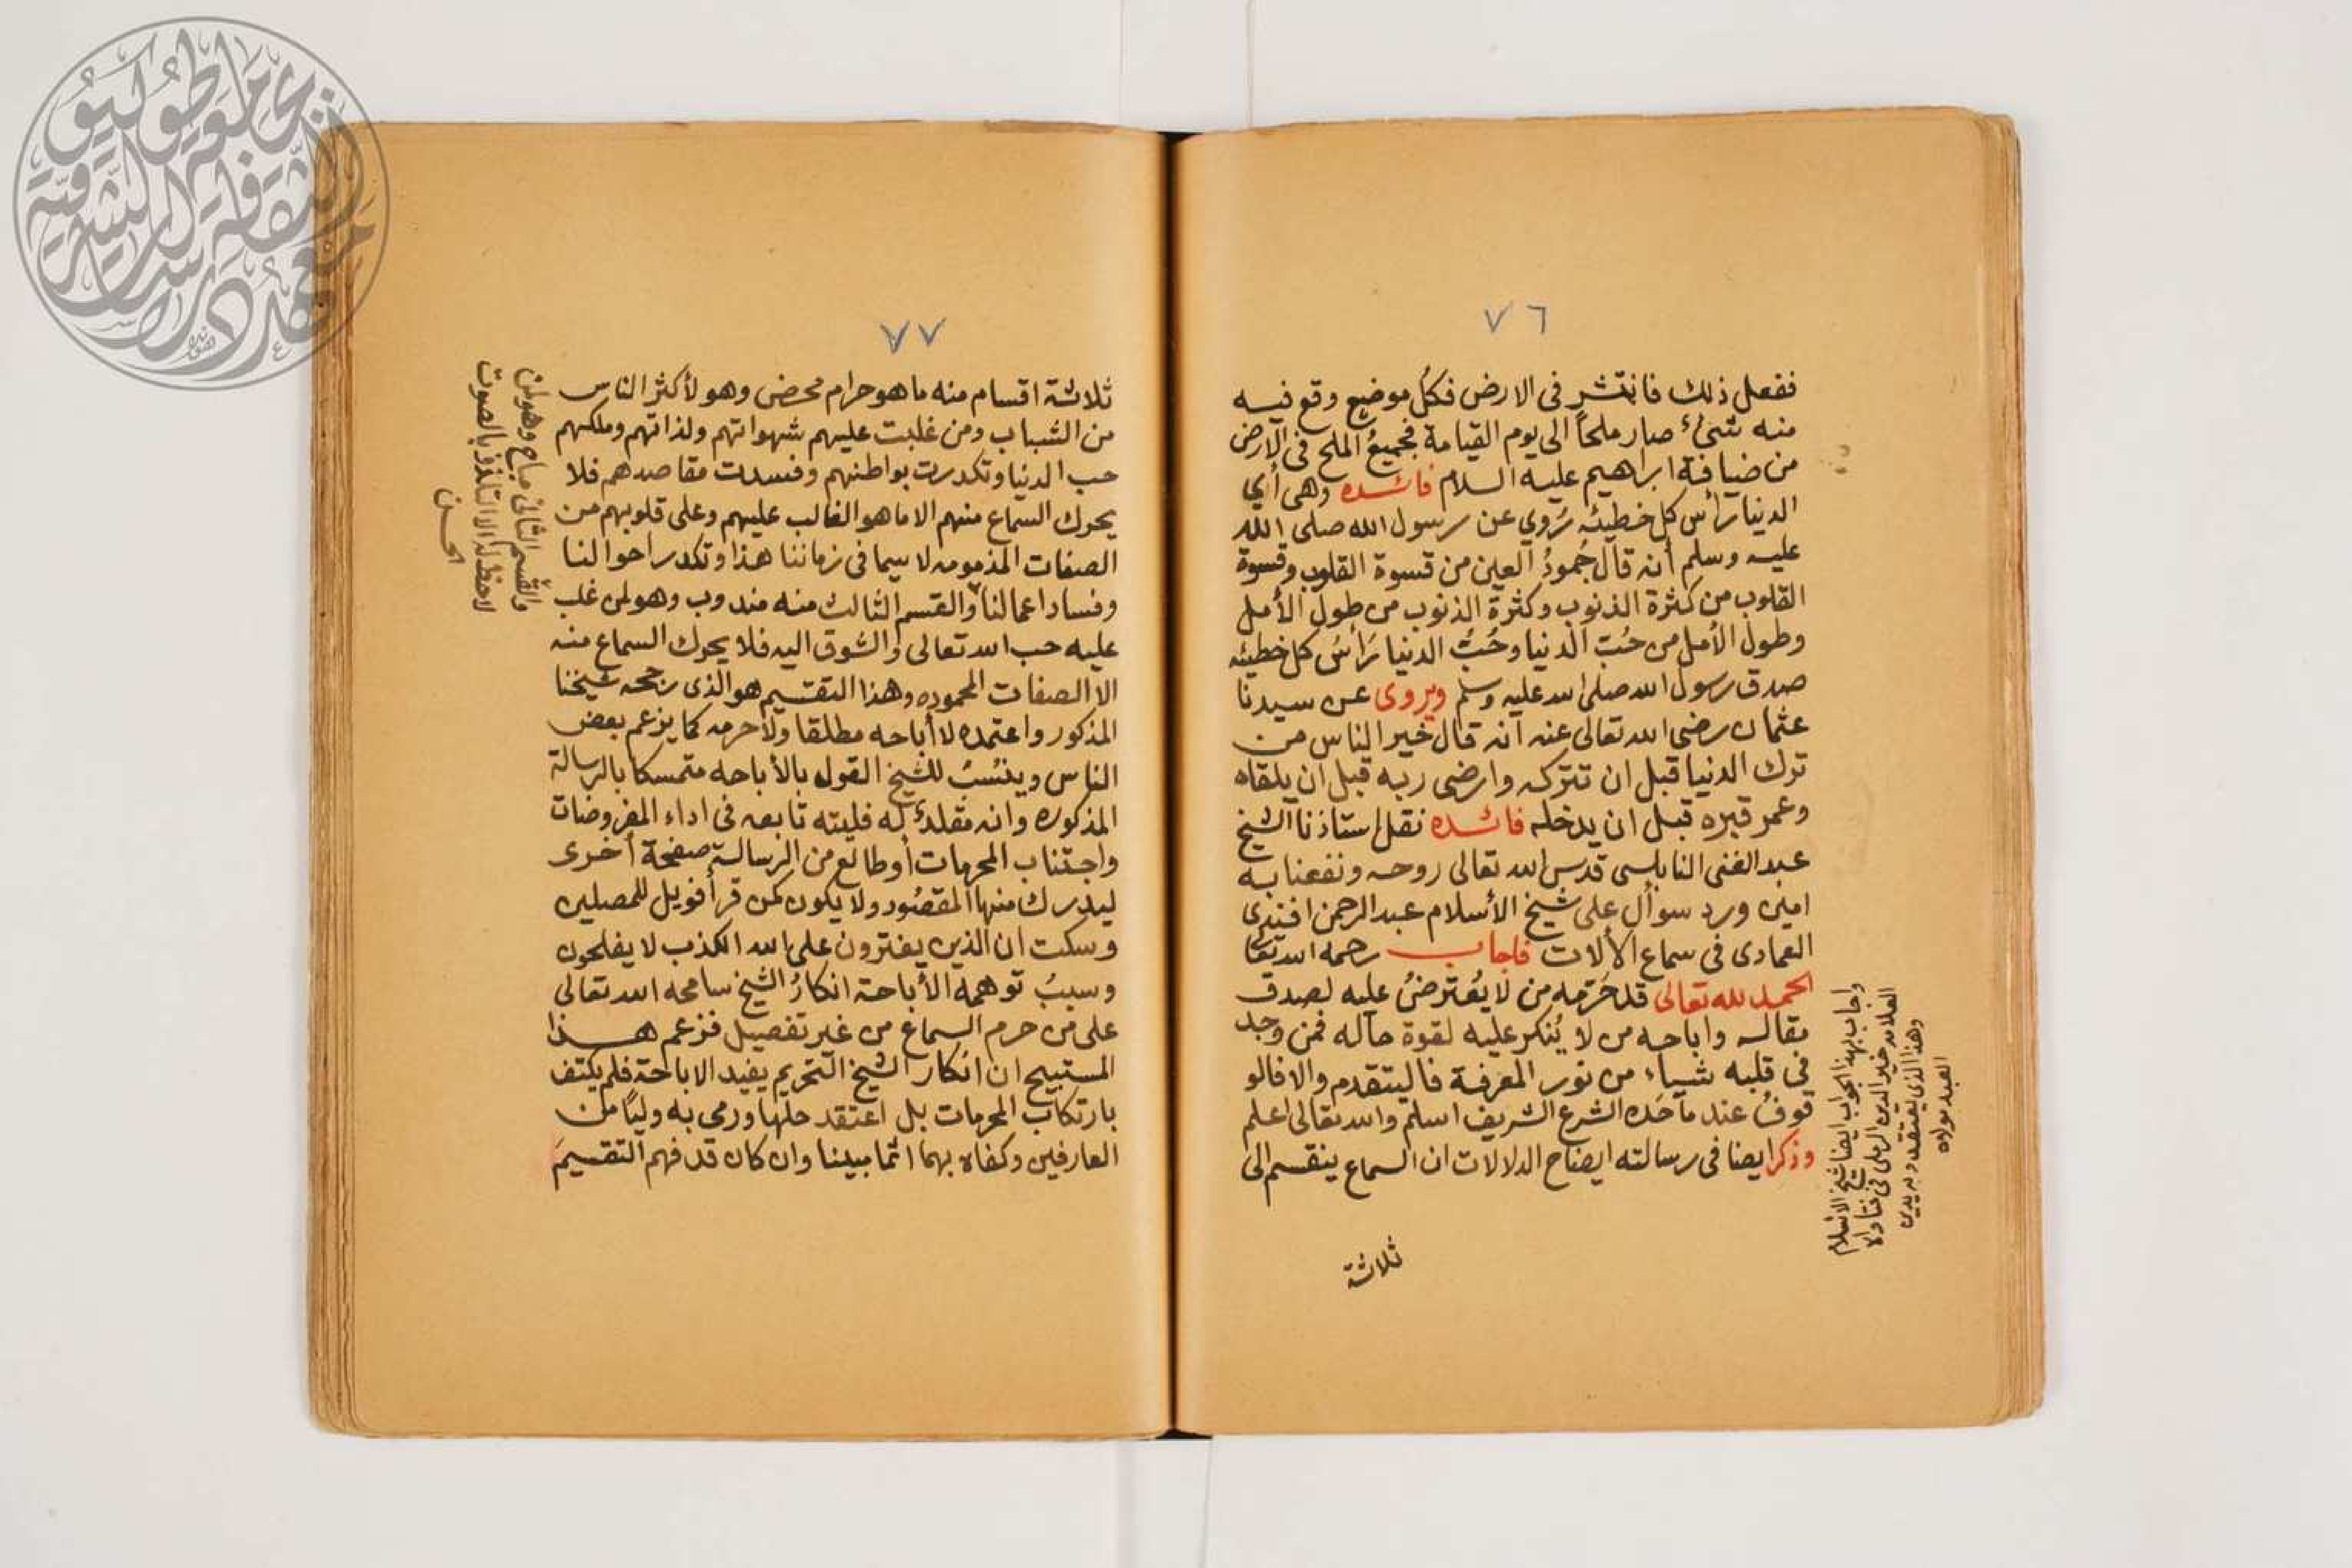 ٧٦
ففعل ذلك فانتشر في الارض فكل موضع وقع فيه
منه شيئ صار ملحاً الى يوم القيامة فجميعُ الملح في الارض
من ضيافة ابراهيم عليه السلام فائده وهي أي
الدنيا رأس كل خطيئه رُوي عن رسول الله صلى الله
عليه وسلم أنه قال جُمودُ العين من قسوة القلوب وقسوة
القلوب من كثرة الذنوب وكثرة الذنوب من طول الأمل
وطول الأمل من حُبّ الدنيا وحُبُّ الدنيا رَأسُ كل خطيئه
صدق رسول الله صلى الله عليه وسلم ويروى عن سيدنا
عثمان رضي الله تعالى عنه أنه قال خير الناس من
ترك الدنيا قبل ان تتركه وارضى ربه قبل ان يلقاه
وعمر قبره قبل ان يدخله فائده نقل استاذنا الشيخ
عبد الغني النابلسي قدس الله تعالى روحه ونفعنا به
امين ورد سوأل على شيخ الأسلام عبد الرحمن افندي
العمادي في سماع الألات فاجاب رحمه الله تعا
الحمد لله تعالى قد حَرّمه من لا يُعْترضُ عليه لصدق
مقاله واباحه من لا يُنكر عليه لقوة حاله فمن وجد
في قلبه شياء من نور المعرفة فاليتقدم والا فالو
قوفُ عند ما حَده الشرع الشريف اسلم والله تعالى اعلم
وذكر ايضا في رسالته ايضاح الدلالات ان السماع ينقسم الى
ثلاثة
واجاب بهذا الجواب ايضا شيخ الاسلام
العلامه خير الدين الرملي في فتاواه
وهذا الذي يعتقده ويدين
العبد مولاه
٧٧
ثلاثة اقسام منه ما هو حرام محض وهو لأكثر الناس
من الشباب ومن غلبت عليهم شهواتهم ولذاتهم وملكهم
حب الدنيا وتكدرت بواطنهم وفسدت مقاصدهم فلا
يحرك السماع منهم الا ما هو الغالب عليهم وعلى قلوبهم من
الصفات المذمومه لا سيما في زماننا هذا وتكدر احوالنا
وفساد اعمالنا والقسم الثالث منه مندوب وهو لمن غلب
عليه حب الله تعالى والشوق اليه فلا يحرك السماع منه
الا الصفات المحموده وهذا التقسيم هو الذي رجحه شيخنا
المذكور واعتمده لا أباحه مطلقا ولا حرمه كما يزعم بعض
الناس وينسُبُ للشيخ القول بالأباحه متمسكا بالرسالة
المذكوره وانه مقلدٌ له فليته تابعه في اداء المفروضات
واجتناب المحرمات أوطالع من الرسالة صفحة أخرى
ليدرك منها المقصُود ولا يكون كمن قرأ فويل للمصلين
وسكت ان الذين يفترون على الله الكذب لا يفلحون
وسببُ توهمه الأباحة انكارُ الشيخ سامحه الله تعالى
على من حرم السماع من غير تفصيل فزعم هذا
المستبيح ان انكار الشيخ التحريم يفيد الاباحة فلم يكتف
بارتكاب المحرمات بل اعتقد حلها ورمى به وليًا من
العارفين وكفاه بهما اثما مبينا وان كان قد فهم التقسيمَ
والقسم الثاني مباح وهو لمن
لا حظ له الا التلذذ بالصوت
الحسن